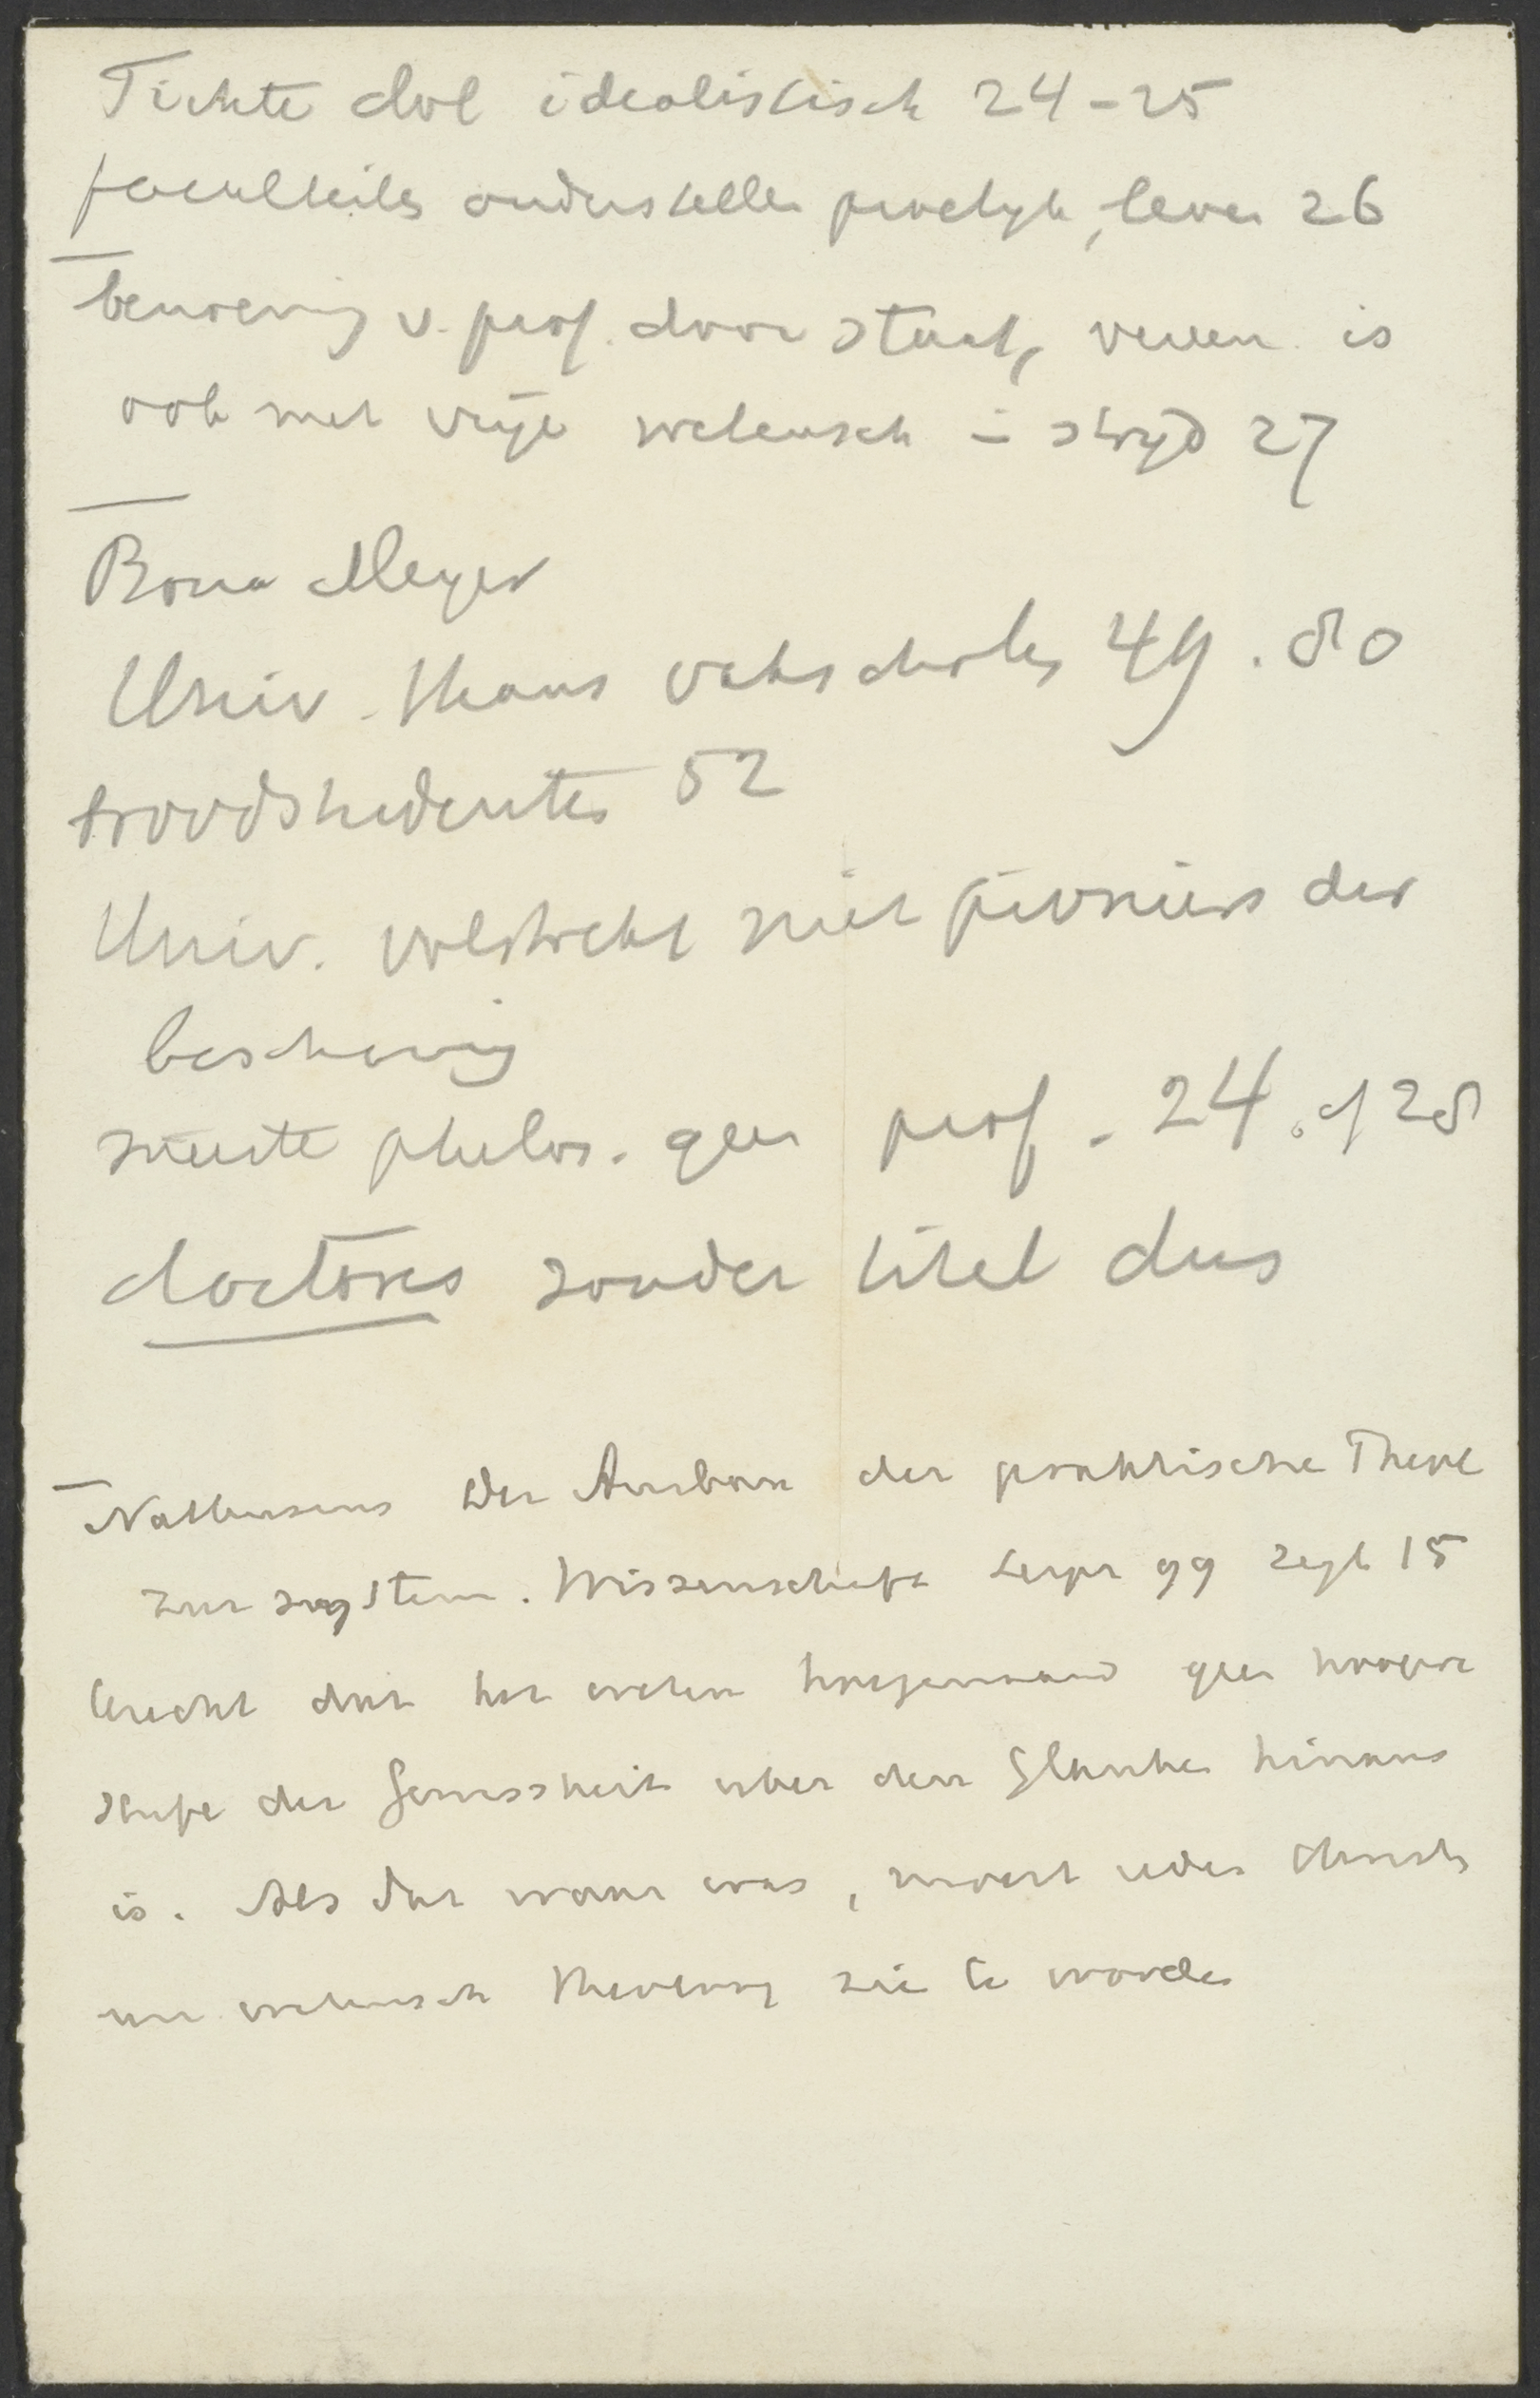 Fichte dol idealistisch 24-25
faculteiten onderstellen practijk, leven 26
benoeming v. prof. door staat, veren. is
ook met vrije wetensch in strijd 27
Bona Meyer
Univ. thans vakscholen 49. 80
broodstudenten 52
Univ. volstrekt niet pioniers der
beschaving
meeste philos. geen prof. 24. of 28
doctores zonder titel dus
Nathusius Der Ausbau der praktische Theol
zur system. Wissenschaft Leipz 99 zegt 15
terecht dat het weten hoegenaamd geen hoogere
stufe der Gewissheit über den Glauben hinaus
is. Als dat waar was, moest ieder Christ
um wetensch theoloog zien te worden